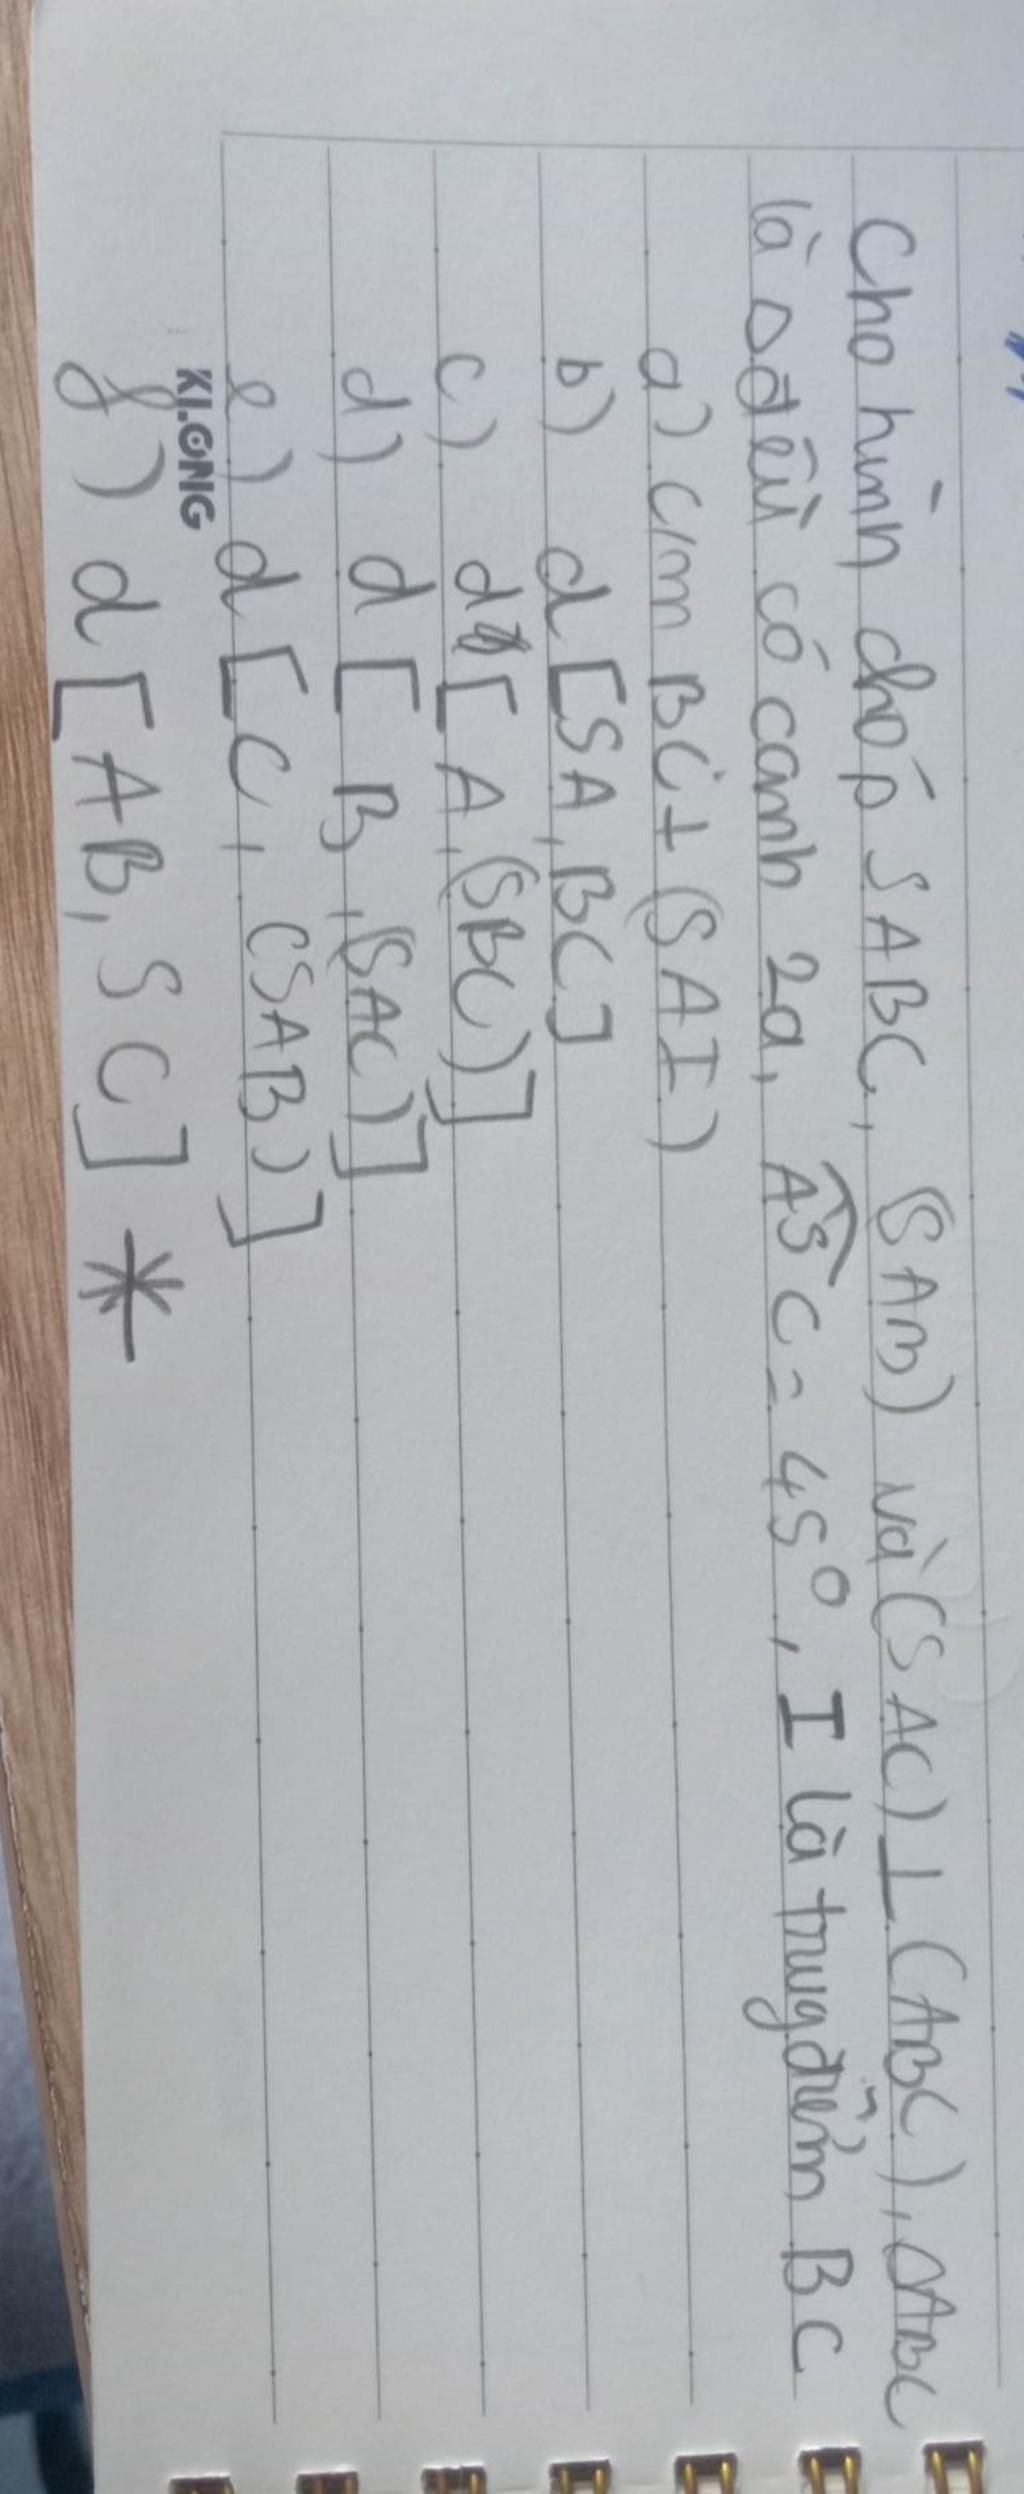 Cho hình chóp SABC, (SAB) và (SAC) ⊥ (ABC), ΔABC
là Δđều có cạnh 2a, ASC = 45°, I là trung điểm BC
a) c/m BC ⊥ (SAI)
b) d[SA, BC]
c) d[A, (SBC)]
d) d[B, (SAC)]
e) d[C, (SAB)]
KLONG
f) d[AB, SC] *